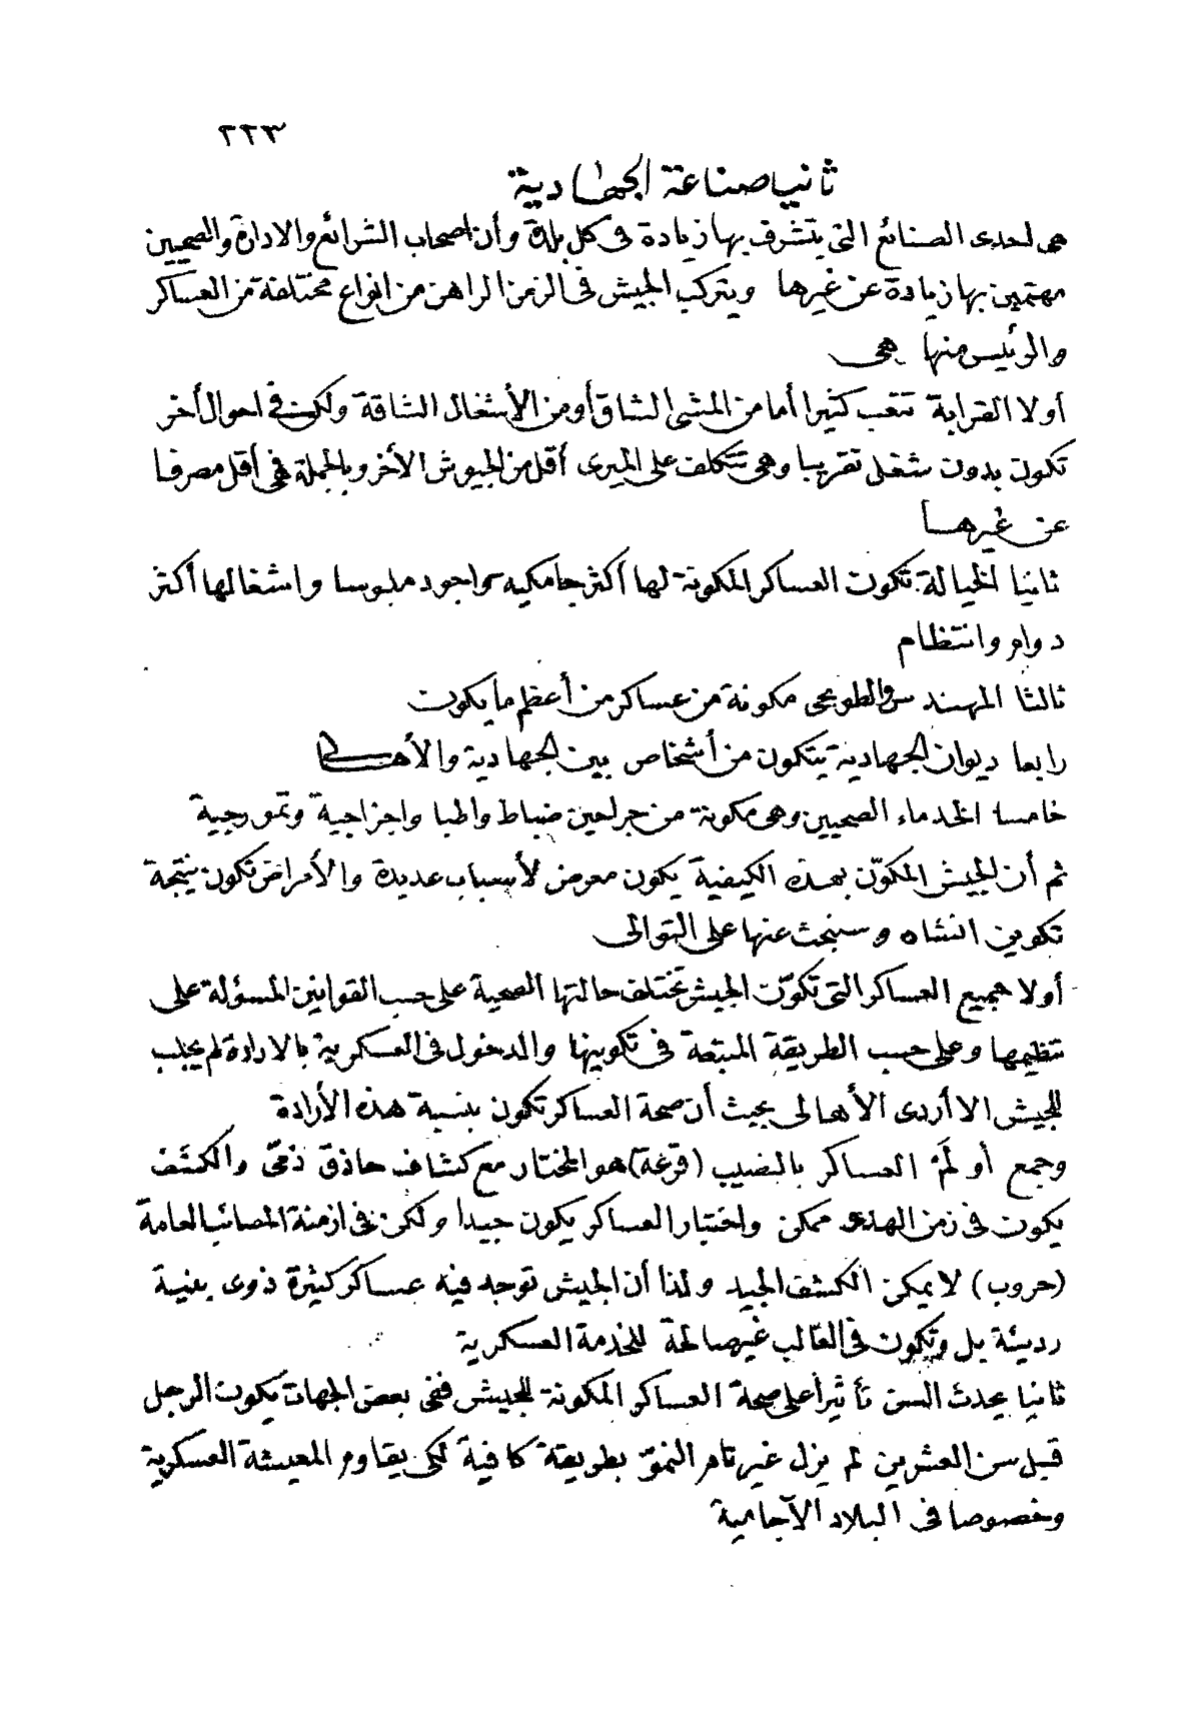 ٢٢٣
ثانيا صناعة الجهادية
هى احدى الصنائع التى يتشرف بها زيادة فى كل بلدة وأن اصحاب الشرائع والادارة والصحيين
مهتمين بها زيادة عن غيرها ويتركب الجيش فى الزمن الراهن من انواع مختلفة من العساكر
والرئيس منها هى
أولا القرابة تتعب كثيرا أما من المشى الشاق أو من الأشغال الشاقة ولكن فى احوال أخر
تكون بدون شغل تقريبا وهى تتكلف على الميرى أقل من الجيوش الأخر وبالجملة هى أقل مصرفا
عن غيرها
ثانيا الخيالة تكون العساكر المكونة لها أكثر جامكيه واجود ملبوسا واشغالها أكثر
دوام وانتظام
ثالثا المهندس والطوبجى مكونة من عساكر من أعظم ما يكون
رابعا ديوان الجهادية يتكون من أشخاص بين الجهادية والأهالى
خامسا الخدماء الصحيين وهى مكونة من جراحين ضباط واطبا واجزاجية وتمورجية
ثم أن الجيش المكوّن بهذه الكيفية يكون معرض لأسباب عديدة والأمراض تكون نتيجة
تكوين النشاه وسنبحث عنها على التوالى
أولا جميع العساكر التى تكوّن الجيش تختلف حالتها الصحية على حسب القوانين المسؤلة على
تنظيمها وعلى حسب الطريقة المتبعة فى تكوينها والدخول فى العسكرية بالارادة لم يجلب
للجيش الا أردى الأهالى بحيث أن صحة العساكر تكون بنسبة هذه الأرادة
وجمع أو لَمّ العساكر بالنصيب (قرعة) هو المختار مع كشاف حاذق ذمّى والكشف
يكون فى زمن الهدو ممكن واختيار العساكر يكون جيدا ولكن فى ازمنة المصائب العامة
(حروب) لا يمكن الكشف الجيد ولذا أن الجيش توجد فيه عساكر كثيرة ذوى بنية
رديئة بل وتكون فى الغالب غير صالحة للخدمة العسكرية
ثانيا يحدث السن تأثيرا على صحة العساكر المكونة للجيش ففى بعض الجهات يكون الرجل
قبل سن العشرين لم يزل غير تام النموّ بطريقة كافية لكى يقاوم المعيشة العسكرية
وخصوصا فى البلاد الآجامية